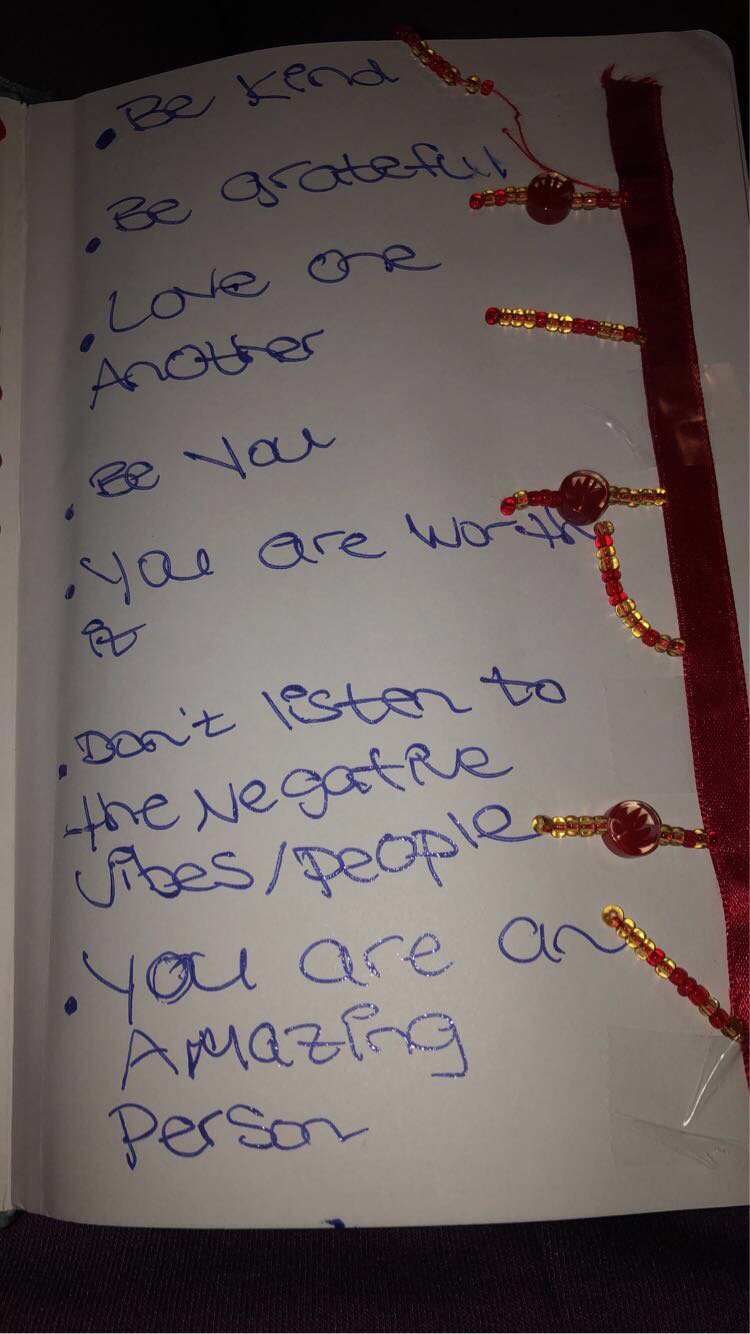 . Be Kind
. Be grateful
. Love one
Another
. Be You
. You are worth
it
. Don't listen to
the Negative
Vibes/people
. You are an
Amazing
Person